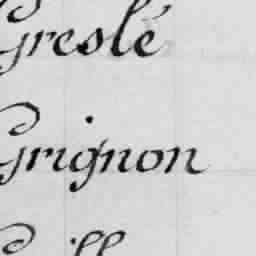 Greslé
Grignon